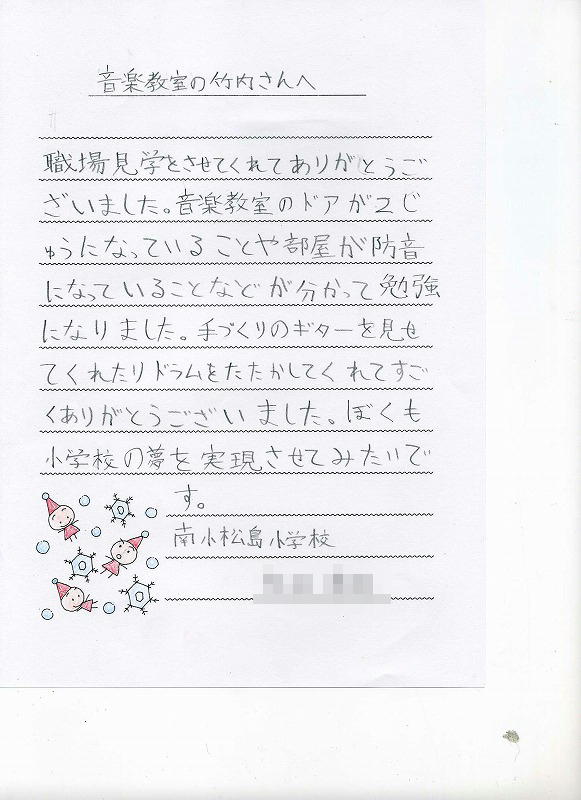 音楽教室の竹内さんへ
職場見学をさせてくれてありがとうご
ざいました。音楽教室のドアが2じ
ゅうになっていることや部屋が防音
になっていることなどが分かって勉強
になりました。手づくりのギターを見せ
てくれたりドラムをたたかしてくれてすご
くありがとうございました。ぼくも
小学校の夢を実現させてみたいで
す。
南小松島小学校